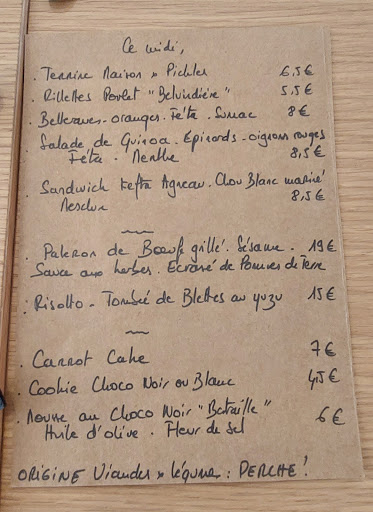 Ce midi,
. Terrine Maison & Pickles 6,5€
. Rillettes Poulet "Belvindière" 5,5€
. Betteraves - oranges - Féta - Sumac 8€
. Salade de Quinoa. Epinards - oignons rouges
Féta - Menthe 8,5€
. Sandwich Kefta Agneau. Chou Blanc mariné
Mesclun 8,5€
. Paleron de Bœuf grillé. Sésame. 19€
Sauce aux herbes. Ecrasé de Pommes de Terre
. Risotto - Tombée de Blettes au yuzu 15€
. Carrot Cake 7€
. Cookie Choco Noir ou Blanc 4,5€
. Mousse au Choco Noir "Bataille" 6€
Huile d'olive. Fleur de Sel
ORIGINE Viandes & légumes : PERCHE !